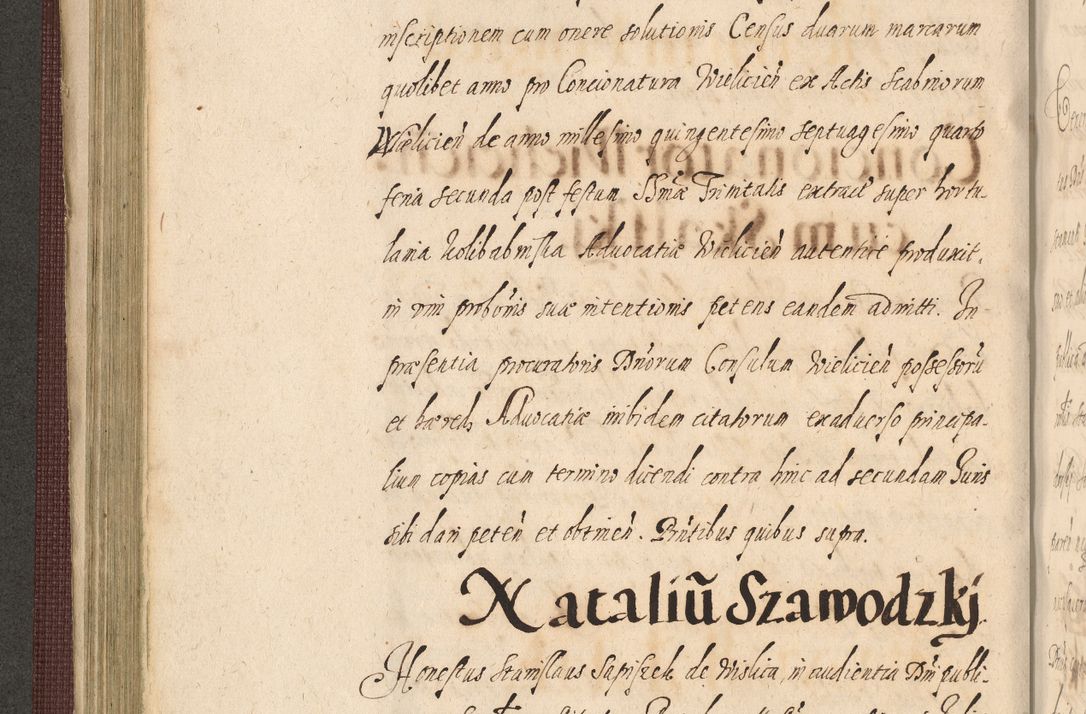 inscriptionem cum onere solutionis Census duarum marcarum
quolibet anno pro Concionatura Wielicien̄ ex Actis scabinorum
Wielicien̄ de anno millesimo quingentesimo septuagesimo quarto
feria secunda post festum SSmæ Trinitatis extract super hortu-
lania Advocatiæ Wielicien̄ autentice produxit.
in vim probōnis suæ intentionis petens eandem admitti. In
præsentia procuratoris Dn̄orum Consulum Wielicien̄ possessorū
et hæred. Advocatiæ inibidem citatorum ex adverso principa-
lium copias cum termino dicendi contra hinc ad secundam Juris
sibi dari peten̄ et obtinen̄. Pn̄tibus quibus supra.
Nataliū Szawodzkj
Honestus Stanislaus Sapiszek de Wislica, in audientia Dn̄i publi-